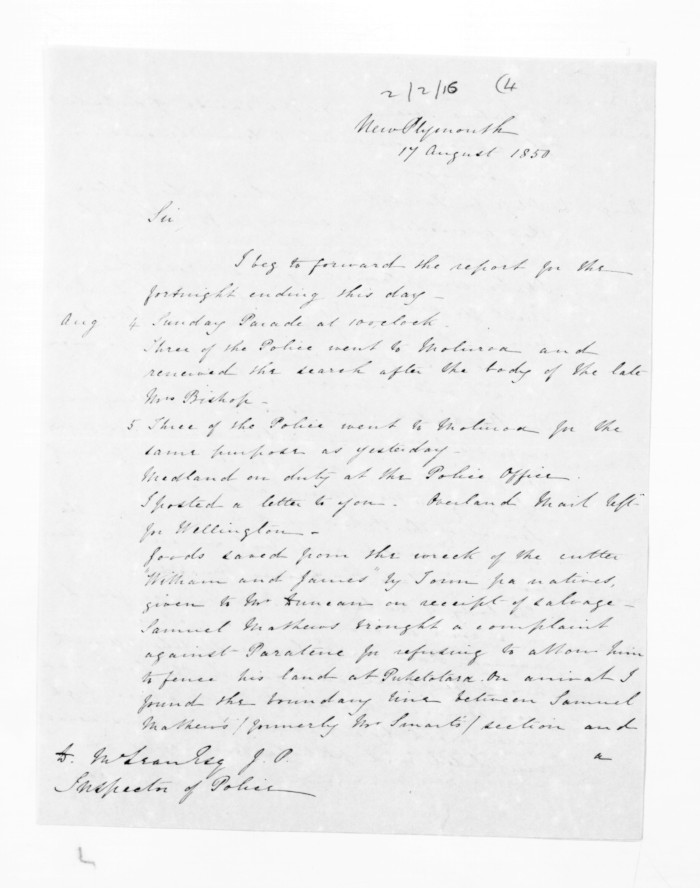 2/2/16 (4
New Plymouth
17 August 1850
Sir
I beg to forward the report for the
fortnight ending this day -
Aug 4 Sunday Parade at 10 oclock.
Three of the Police went to Moturoa and
renewed the search after the body of the late
Mrs Bishop -
5 Three of the Police went to Moturoa for the
same purpose as yesterday -
Medland on duty at the Police Office.
I posted a letter to you. Overland Mail left
for Wellington -
Goods saved from the wreck of the cutter
"William and James" by Town pa natives,
given to Mr Duncan on receipt of salvage -
Samuel Mathews brought a complaint
against Paratene for refusing to allow him
to fence his land at Puketotara. On arrival I
found the boundary line between Samuel
Mathews' /formerly Mr Smarts/ section and
a
D. McLean Esq J. P.
Inspector of Police
L